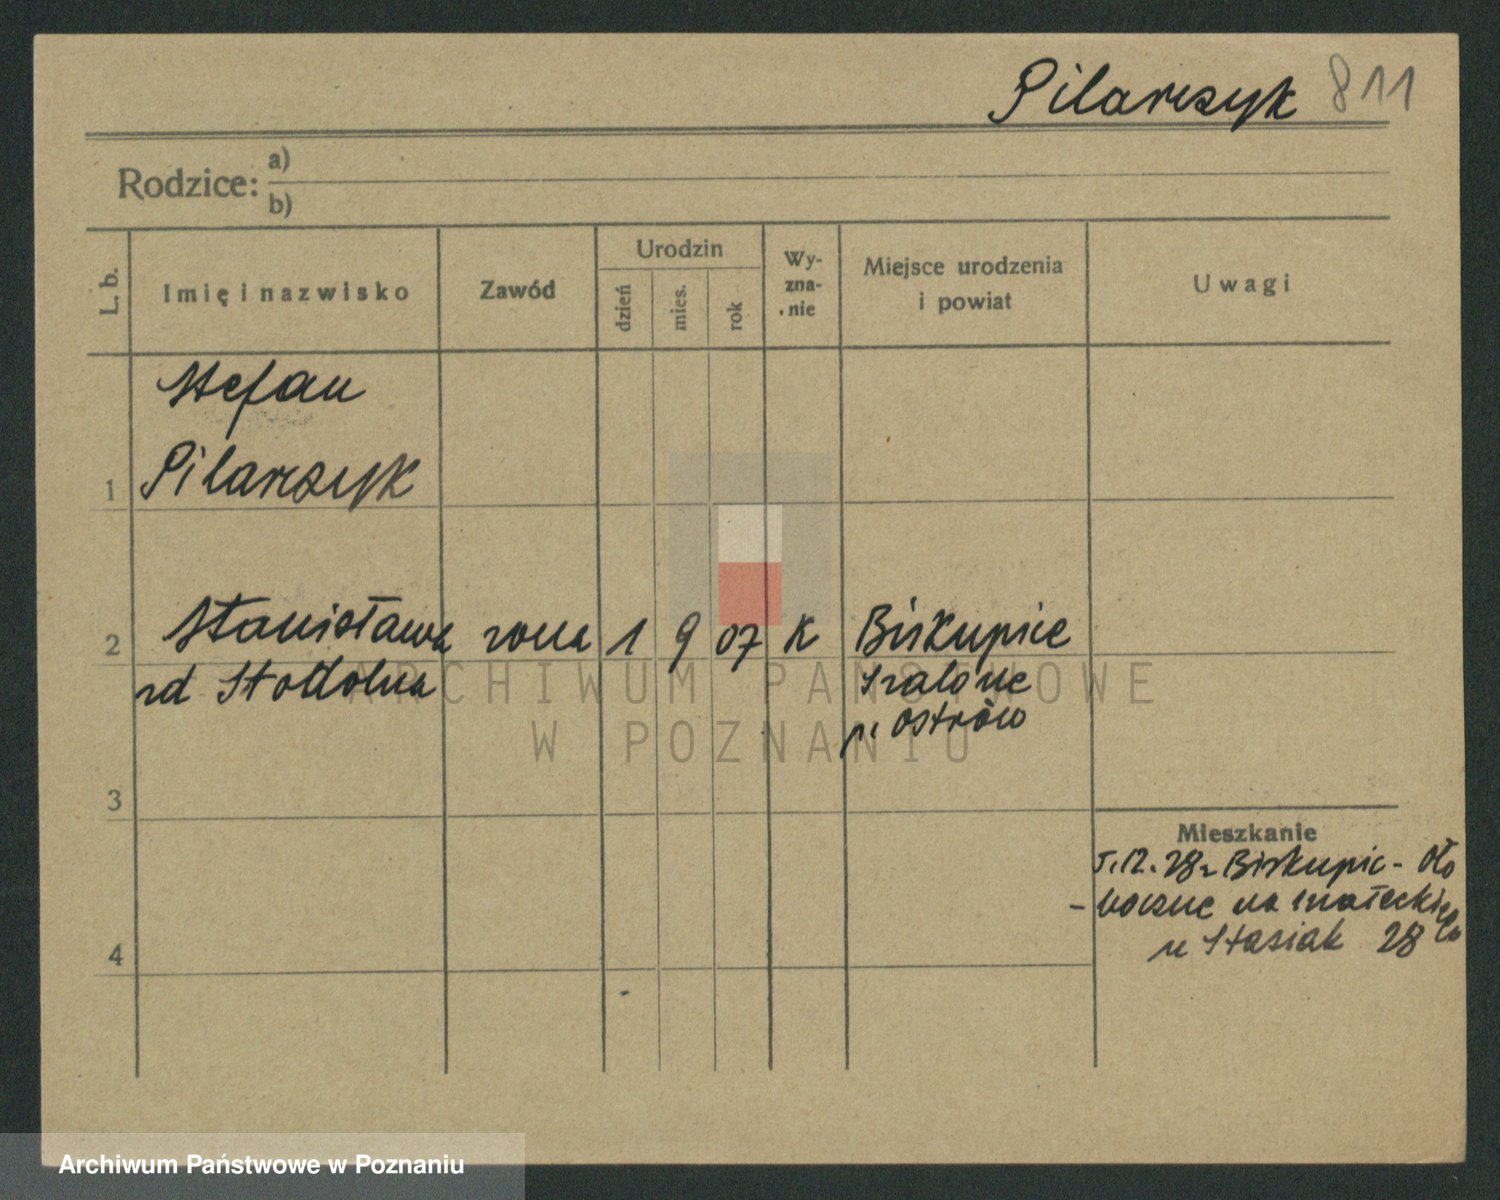 Pilarczyk 811
Rodzice: a)
b)
L. b.
Imię i nazwisko
Zawód
Urodzin
dzień
mies.
rok
Wy-
zna-
nie
Miejsce urodzenia
i powiat
Uwagi
Stefan
1 Pilarczyk
2 Stanisława żona 1 9 07 K Biskupice
rd Stodolna Szalone
p. Ostrów
ARCHIWUM PAŃSTWOWE
W POZNANIU
3
Mieszkanie
5.12.28 r Biskupic - Oło
- boczne na
u Stasiak 28
4
Archiwum Państwowe w Poznaniu